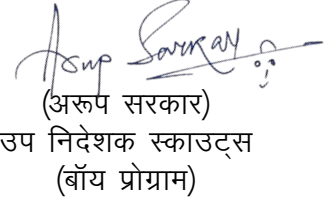 Arup Sarkar
(अरूप सरकार)
उप निदेशक स्काउट्स
(बॉय प्रोग्राम)